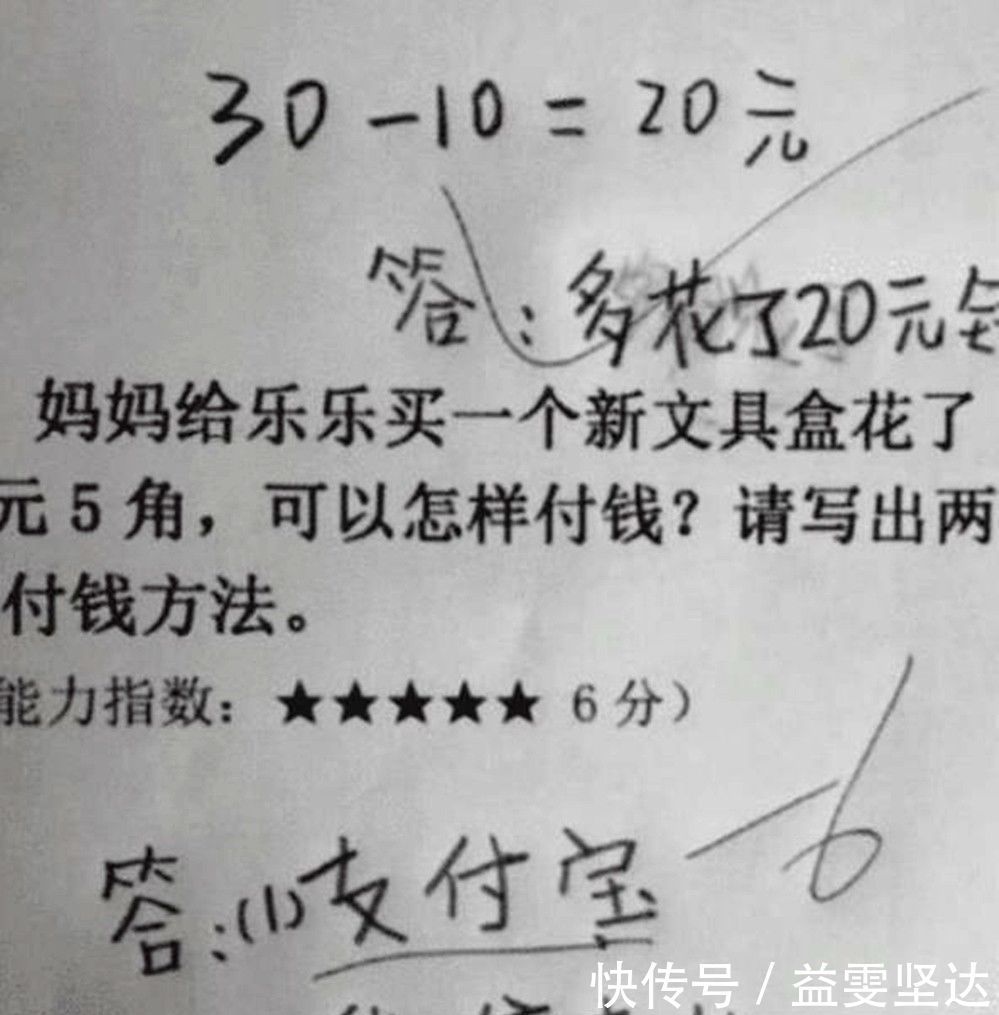 30-10=20元
答:多花了20元
妈妈给乐乐买一个新文具盒花了
元5角，可以怎样付钱？请写出两
付钱方法。
能力指数：★★★★★ 6分）
-6
答:(1)支付宝
快传号/益雯坚达